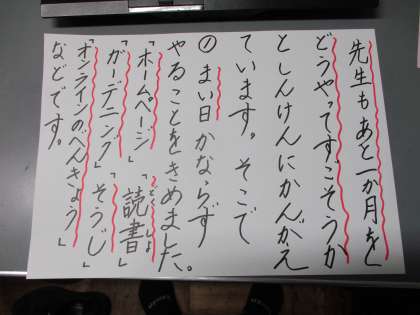 先生もあと一か月をど
どうやってすごそうか
としんけんにかんがえ
ています。そこで
①まい日かならず
やることをきめました。
「ホームページ」「読書」どくしょ
「ガーデニング」「そうじ」
「オンラインのべんきょう」
などです。